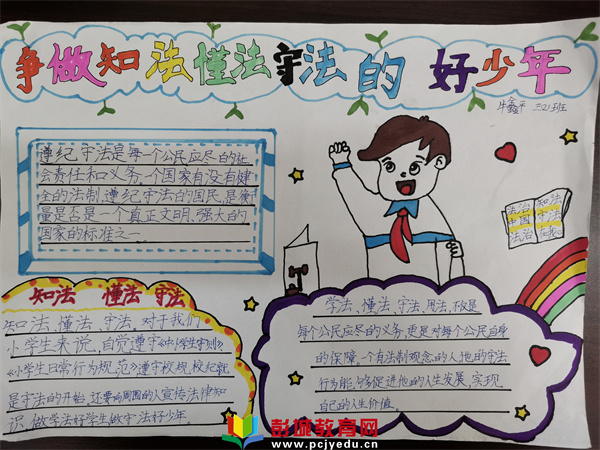 争做知法懂法守法的好少年
牛鑫平 三2班
遵纪守法是每一个公民应尽的社
会责任和义务,一个国家有没有健
全的法制,遵纪守法的国民,是衡
量是否是一个真正文明、强大的
国家的标准之一
法治 知法
中国 守法
法治
知法 懂法 守法
知法、懂法、守法。对于我们
小学生来说,自觉遵守《中小学生守则》
《小学生日常行为规范》遵守校规、校纪就
是守法的开始,还要向周围的人宣传法律知
识,做学法好学生做守法好少年。
学法、懂法、守法、用法,不仅是
每个公民应尽的义务,更是对每个公民自身
的保障。一个有法制观念的人,他的守法
行为能够促进他的人生发展,实现
自己的人生价值。
彭城教育网
www.pcjyedu.cn